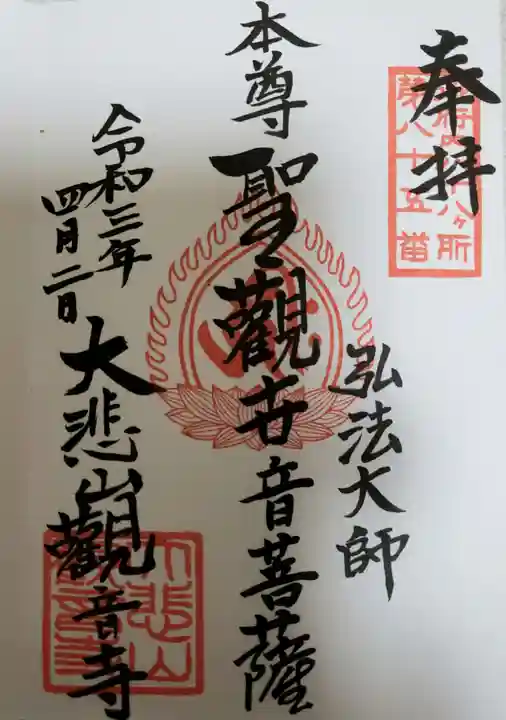 奉拝
御府内八十八ヶ所
第八十五番
弘法大師
本尊 聖觀世音菩薩
令和三年
四月二日
大悲山觀音寺
大悲山
觀音寺